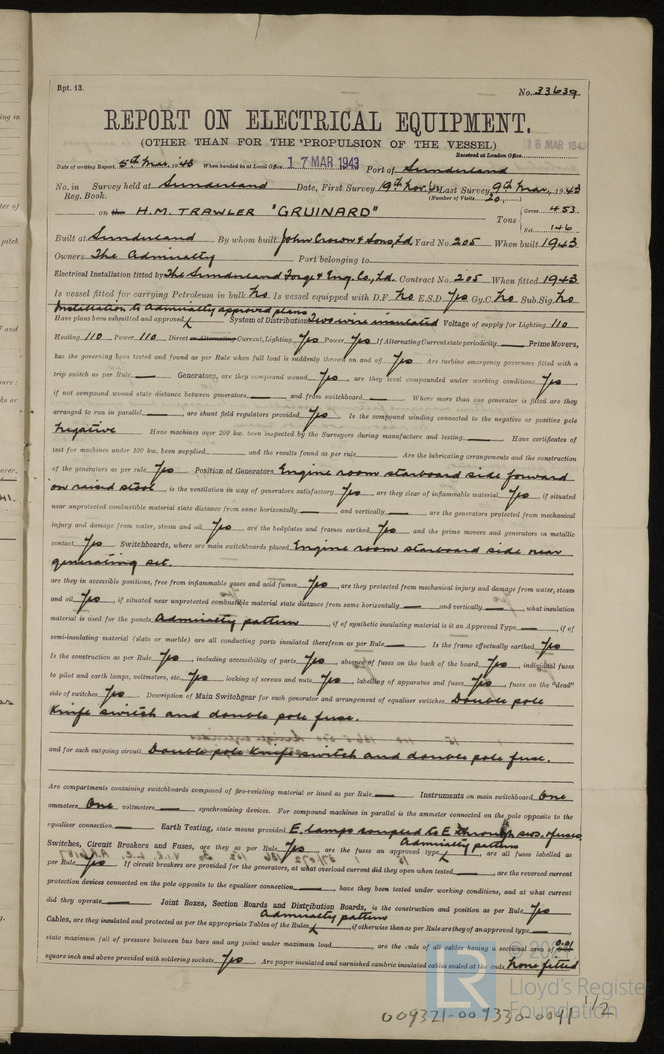 Rpt. 13.
No. 33639
REPORT ON ELECTRICAL EQUIPMENT.
(OTHER THAN FOR THE PROPULSION OF THE VESSEL)
18 MAR 1943
Received at London Office
Date of writing Report 5th Mar. 1943 When handed in at Local Office 17 MAR 1943 Port of Sunderland
No. in Reg. Book. Survey held at Sunderland Date, First Survey 19th Nov. Last Survey 9th Mar. 1943
(Number of Visits 20)
on the H.M. TRAWLER "GRUINARD" Tons { Gross 453 Net 146
Built at Sunderland By whom built John Crown & Sons, Ld. Yard No. 205 When built 1943
Owners The Admiralty Port belonging to
Electrical Installation fitted by The Sunderland Forge & Eng. Co., Ld. Contract No. 205 When fitted 1943
Is vessel fitted for carrying Petroleum in bulk No Is vessel equipped with D.F. No E.S.D. Yes Gy.C. No Sub.Sig. No
Installation to Admiralty approved plans
Have plans been submitted and approved System of Distribution Two wire insulated Voltage of supply for Lighting 110
Heating 110 Power 110 Direct or Alternating Current, Lighting Yes Power Yes If Alternating Current state periodicity — Prime Movers,
has the governing been tested and found as per Rule when full load is suddenly thrown on and off Yes Are turbine emergency governors fitted with a
trip switch as per Rule — Generators, are they compound wound Yes, are they level compounded under working conditions Yes,
if not compound wound state distance between generators — and from switchboard — Where more than one generator is fitted are they
arranged to run in parallel —, are shunt field regulators provided Yes Is the compound winding connected to the negative or positive pole
Negative Have machines over 100 kw. been inspected by the Surveyors during manufacture and testing — Have certificates of
test for machines under 100 kw. been supplied — and the results found as per rule — Are the lubricating arrangements and the construction
of the generators as per rule Yes Position of Generators Engine room starboard side forward
on raised stool, is the ventilation in way of generators satisfactory Yes are they clear of inflammable material Yes, if situated
near unprotected combustible material state distance from same horizontally — and vertically —, are the generators protected from mechanical
injury and damage from water, steam and oil Yes, are the bedplates and frames earthed Yes and the prime movers and generators in metallic
contact Yes Switchboards, where are main switchboards placed Engine room starboard side near
generating set.
are they in accessible positions, free from inflammable gases and acid fumes Yes, are they protected from mechanical injury and damage from water, steam
and oil Yes, if situated near unprotected combustible material state distance from same horizontally — and vertically —, what insulation
material is used for the panels Admiralty pattern, if of synthetic insulating material is it an Approved Type —, if of
semi-insulating material (slate or marble) are all conducting parts insulated therefrom as per Rule — Is the frame effectually earthed Yes
Is the construction as per Rule Yes, including accessibility of parts Yes, absence of fuses on the back of the board Yes, individual fuses
to pilot and earth lamps, voltmeters, etc. Yes locking of screws and nuts Yes, labelling of apparatus and fuses Yes, fuses on the "dead"
side of switches Yes Description of Main Switchgear for each generator and arrangement of equaliser switches Double pole
Knife switch and double pole fuse.
and for each outgoing circuit Double pole Knife switch and double pole fuse.
Are compartments containing switchboards composed of fire-resisting material or lined as per Rule — Instruments on main switchboard One
ammeters One voltmeters — synchronising devices. For compound machines in parallel is the ammeter connected on the pole opposite to the
equaliser connection — Earth Testing, state means provided E. lamps coupled to E through sws. & fuses
Admiralty pattern
Switches, Circuit Breakers and Fuses, are they as per Rule Yes, are the fuses an approved type, are all fuses labelled as
per Rule Yes If circuit breakers are provided for the generators, at what overload current did they open when tested —, are the reversed current
protection devices connected on the pole opposite to the equaliser connection —, have they been tested under working conditions, and at what current
did they operate — Joint Boxes, Section Boards and Distribution Boards, is the construction and position as per Rule Yes
Admiralty pattern
Cables, are they insulated and protected as per the appropriate Tables of the Rules, if otherwise than as per Rule are they of an approved type —,
state maximum fall of pressure between bus bars and any point under maximum load —, are the ends of all cables having a sectional area of 0.01
square inch and above provided with soldering sockets Yes Are paper insulated and varnished cambric insulated cables sealed at the ends None fitted
LR
Lloyd's Register
Foundation
009321-009330-0091 1/2